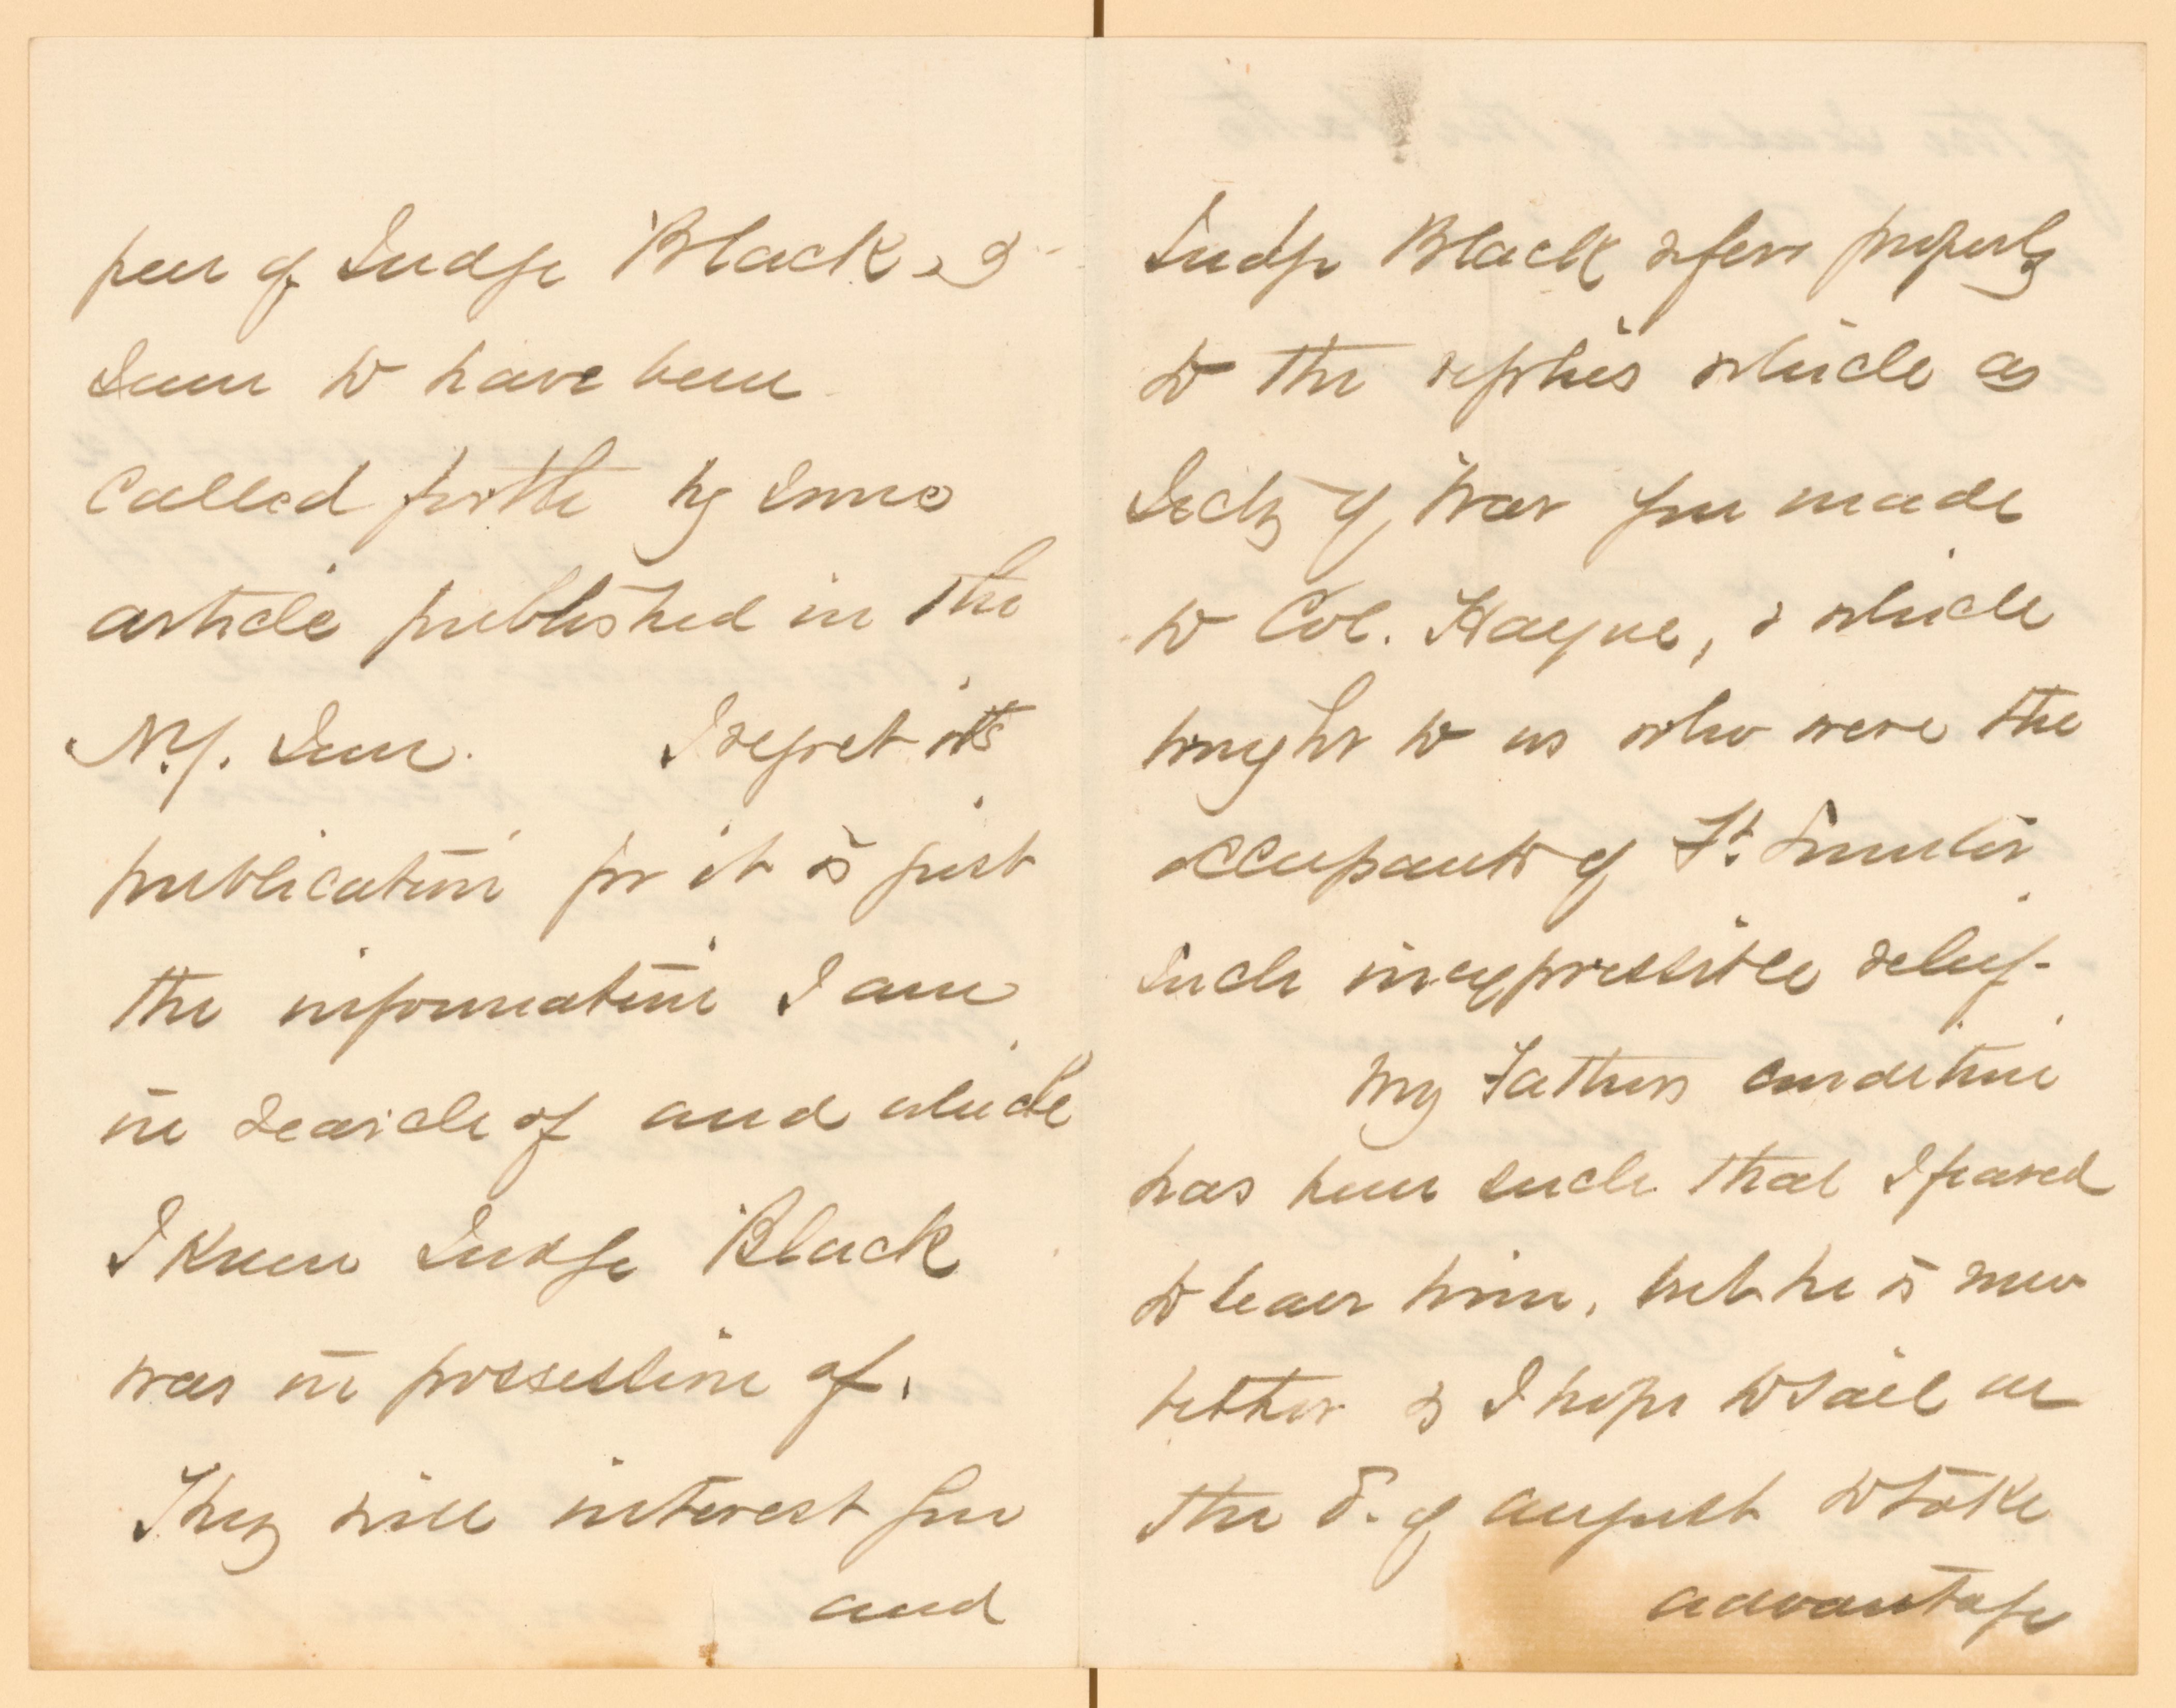 pen of Judge Black, &
seem to have been
called forth by some
article published in the
N.Y. Sun. I regret its
publication for it is just
the information I am
in search of and which
I knew Judge Black
was in possession of.
They will interest you
and
Judge Black refers properly
to the replies which as
Secty of War you made
to Col. Hayne, & which
brought to us who were the
occupants of Ft. Sumter
such inexpressible relief.
My Fathers condition
has been such that I feared
to leave him, but he is now
better & I hope to sail on
the 5. of August to take
advantage